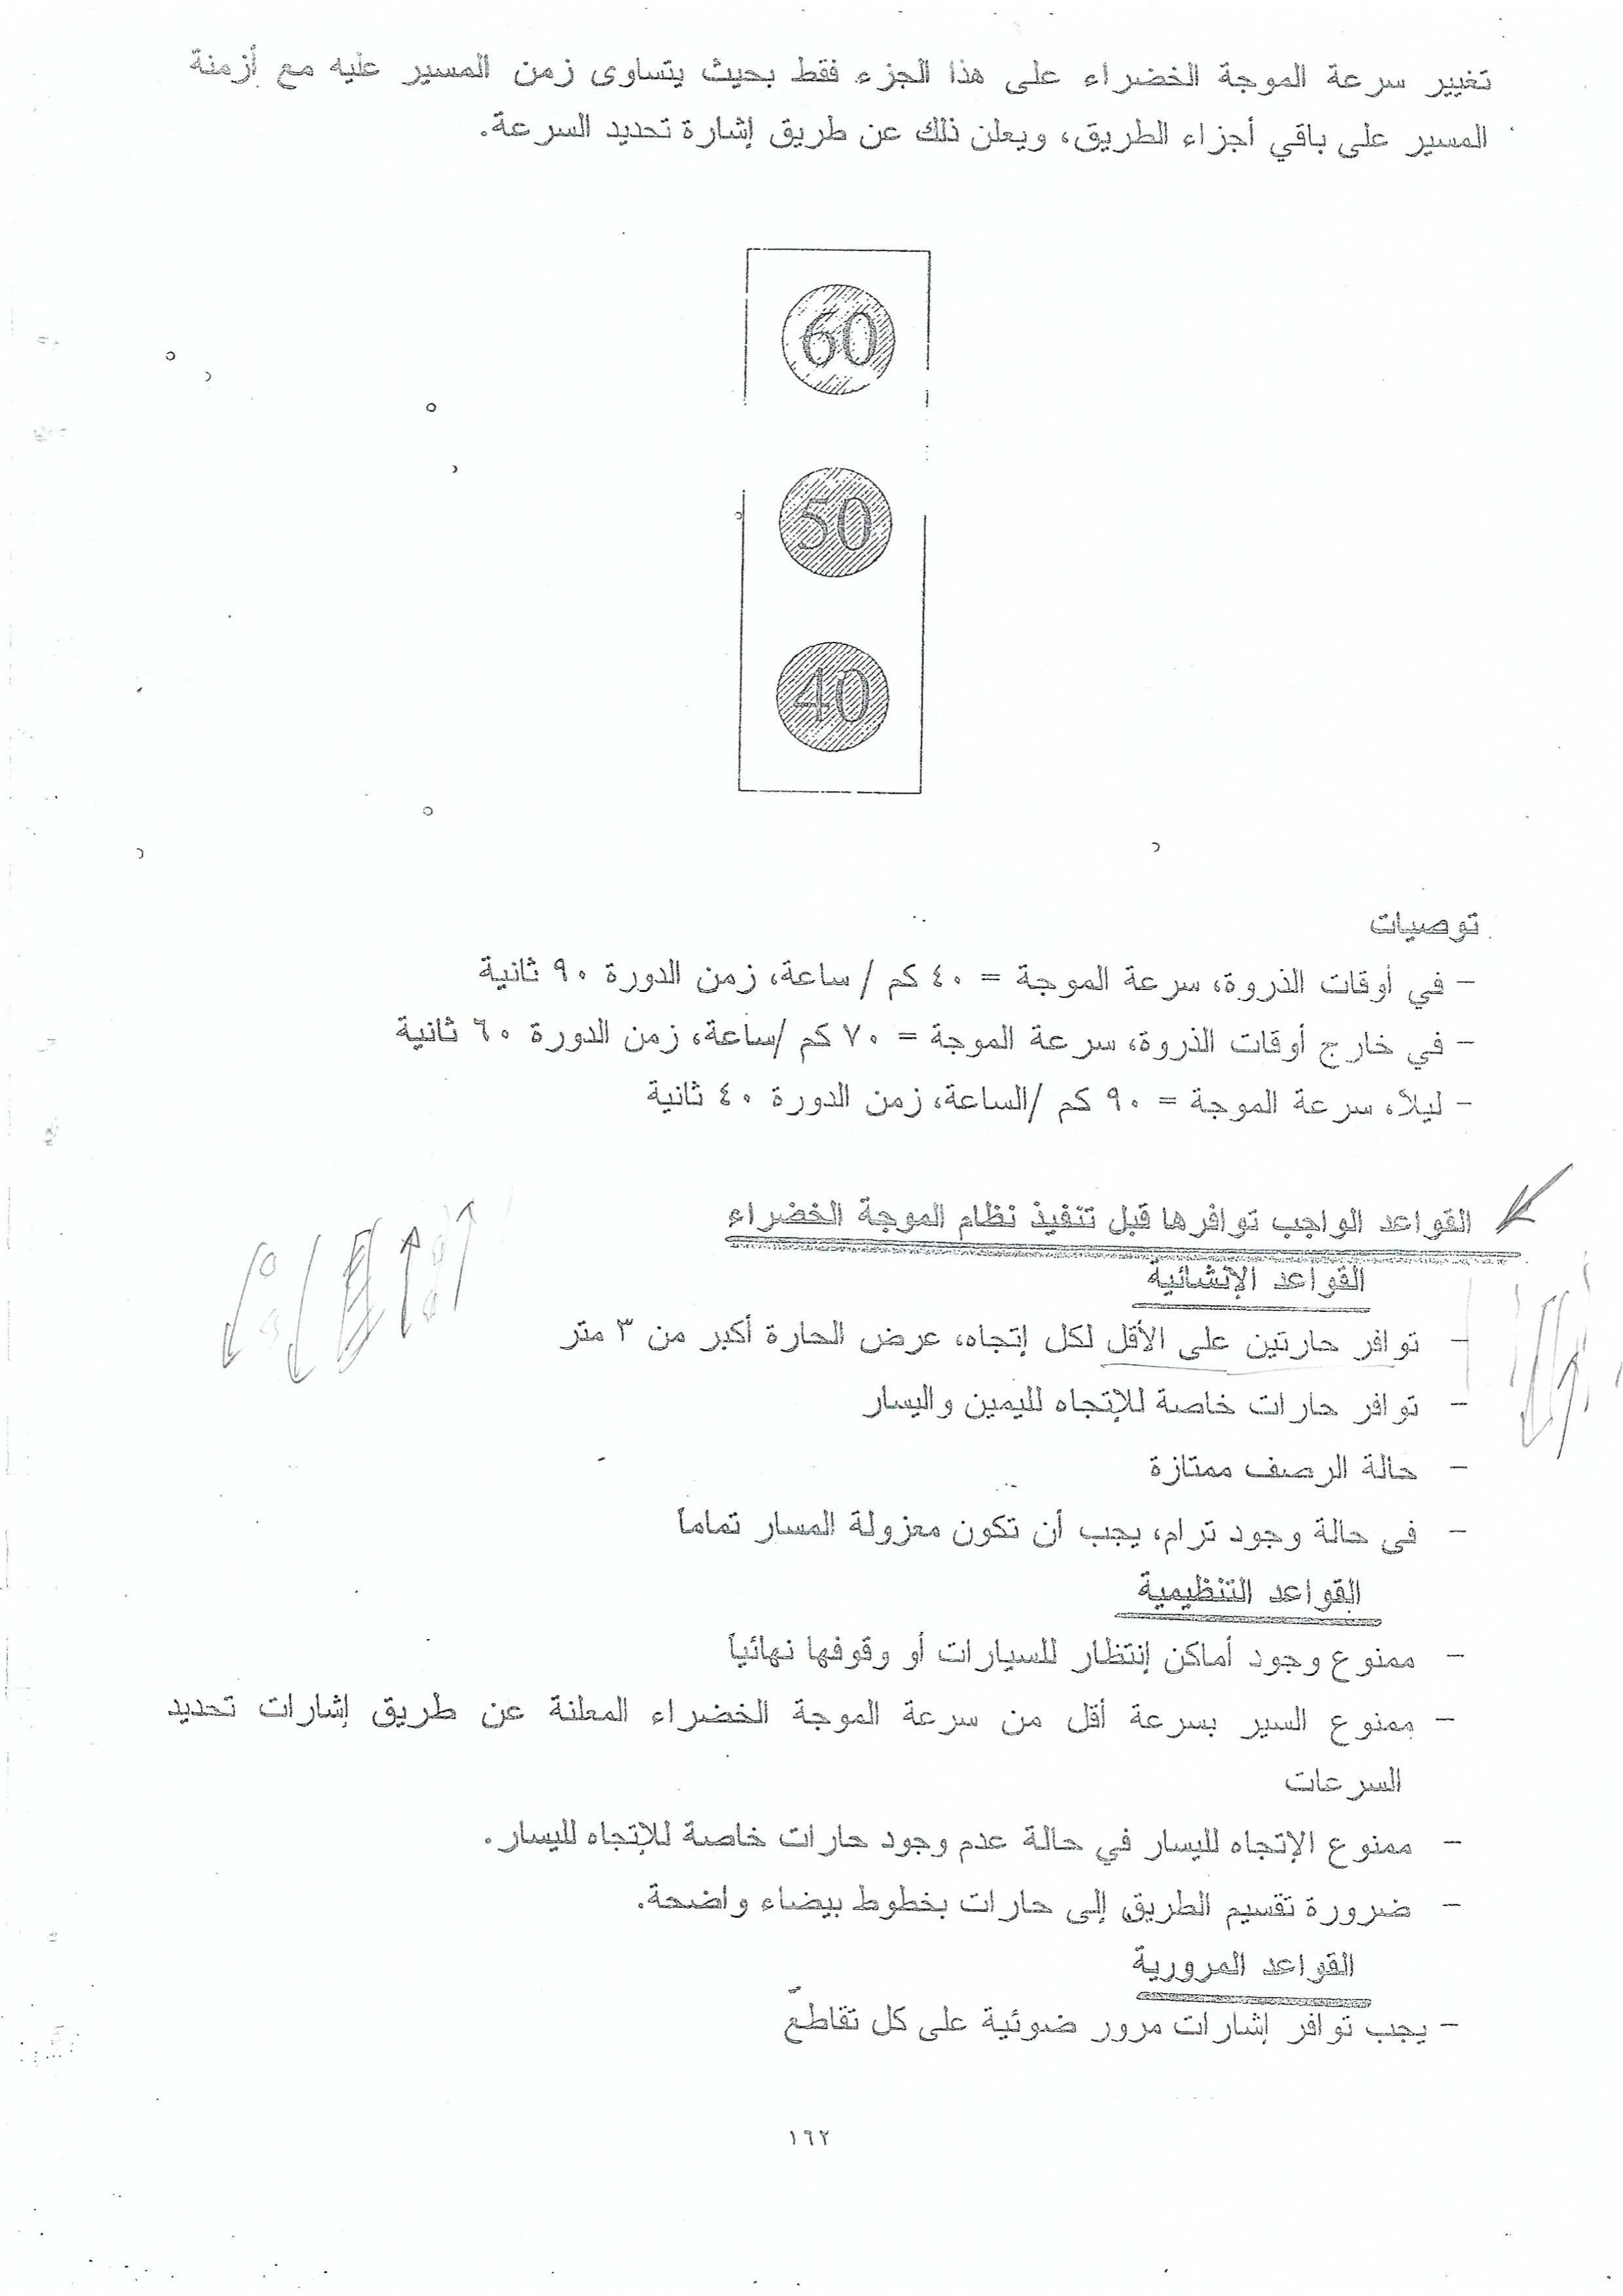 تغيير سرعة الموجة الخضراء على هذا الجزء فقط بحيث يتساوى زمن المسير عليه مع أزمنة
المسير على باقي أجزاء الطريق، ويعلن ذلك عن طريق إشارة تحديد السرعة.
60
50
40
توصيات
- في أوقات الذروة، سرعة الموجة = ٤٠ كم / ساعة، زمن الدورة ٩٠ ثانية
- في خارج أوقات الذروة، سرعة الموجة = ٧٠ كم /ساعة، زمن الدورة ٦٠ ثانية
- ليلاً، سرعة الموجة = ٩٠ كم /الساعة، زمن الدورة ٤٠ ثانية
القواعد الواجب توافرها قبل تنفيذ نظام الموجة الخضراء
القواعد الإنشائية
- توافر حارتين على الأقل لكل إتجاه، عرض الحارة أكبر من ٣ متر
- توافر حارات خاصة للإتجاه لليمين واليسار
- حالة الرصف ممتازة
- فى حالة وجود ترام، يجب أن تكون معزولة المسار تماماً
القواعد التنظيمية
- ممنوع وجود أماكن إنتظار للسيارات أو وقوفها نهائياً
- ممنوع السير بسرعة أقل من سرعة الموجة الخضراء المعلنة عن طريق إشارات تحديد
السرعات
- ممنوع الإتجاه لليسار في حالة عدم وجود حارات خاصة للإتجاه لليسار.
- ضرورة تقسيم الطريق إلى حارات بخطوط بيضاء واضحة.
القواعد المرورية
- يجب توافر إشارات مرور ضوئية على كل تقاطع
١٦٢